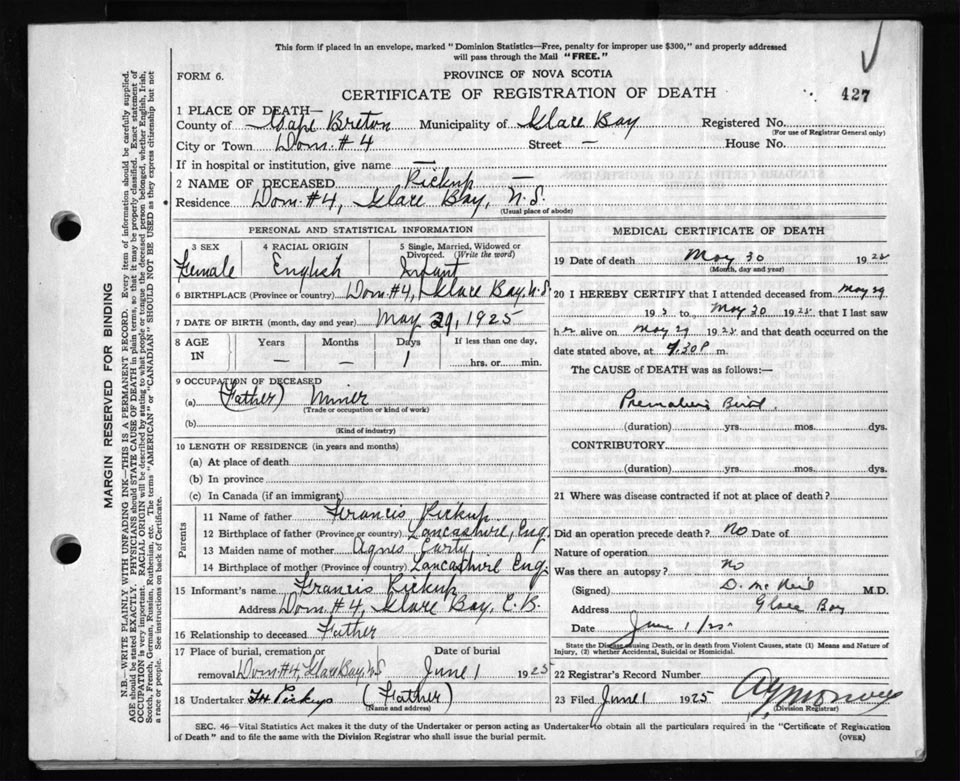 This form if placed in an envelope, marked "Dominion Statistics—Free, penalty for improper use $300," and properly addressed
will pass through the Mail "FREE."
FORM 6.
PROVINCE OF NOVA SCOTIA
CERTIFICATE OF REGISTRATION OF DEATH
427
1 PLACE OF DEATH—
County of Cape Breton Municipality of Glace Bay Registered No.
(For use of Registrar General only)
City or Town Dom. # 4 Street — House No.
If in hospital or institution, give name —
2 NAME OF DECEASED Pickup —
Residence Dom #4, Glace Bay, N.S.
(Usual place of abode)
PERSONAL AND STATISTICAL INFORMATION
3 SEX 4 RACIAL ORIGIN 5 Single, Married, Widowed or Divorced. (Write the word)
Female English Infant
6 BIRTHPLACE (Province or country) Dom #4, Glace Bay, N.S.
7 DATE OF BIRTH (month, day and year) May 29, 1925
8 AGE IN Years Months Days If less than one day,
— — 1 hrs. or min.
9 OCCUPATION OF DECEASED
(a) (Father) Miner
(Trade or occupation or kind of work)
(b)
(Kind of industry)
10 LENGTH OF RESIDENCE (in years and months)
(a) At place of death
(b) In province
(c) In Canada (if an immigrant)
Parents
11 Name of father Francis Pickup
12 Birthplace of father (Province or country) Lancashire, Eng.
13 Maiden name of mother Agnes
14 Birthplace of mother (Province or country) Lancashire Eng.
15 Informant's name Francis Pickup
Address Dom. #4, Glace Bay, C.B.
16 Relationship to deceased Father
17 Place of burial, cremation or Date of burial
removal Dom #4, Glace Bay, N.S. June 1 1925
18 Undertaker (Father)
(Name and address)
MEDICAL CERTIFICATE OF DEATH
19 Date of death May 30 1925
(Month, day and year)
20 I HEREBY CERTIFY that I attended deceased from May 29
192 to May 30 1925, that I last saw
her alive on May 29 1925 and that death occurred on
date stated above, at 7.30 P m.
The CAUSE of DEATH was as follows:—
Premature Birth.
(duration) yrs. mos. dys.
CONTRIBUTORY
(duration) yrs. mos. dys.
21 Where was disease contracted if not at place of death?
Did an operation precede death? No Date of
Nature of operation
Was there an autopsy? No
(Signed) D. McNeil M.D.
Address Glace Bay
Date June 1/25
State the Disease causing Death, or in death from Violent Causes, state (1) Means and Nature of
Injury, (2) whether Accidental, Suicidal or Homicidal.
22 Registrar's Record Number
23 Filed June 1 1925
(Division Registrar)
SEC. 46—Vital Statistics Act makes it the duty of the Undertaker or person acting as Undertaker to obtain all the particulars required in the "Certificate of Registration
of Death" and to file the same with the Division Registrar who shall issue the burial permit. (OVER)
MARGIN RESERVED FOR BINDING
N.B.—WRITE PLAINLY WITH UNFADING INK—THIS IS A PERMANENT RECORD. Every item of information should be carefully supplied.
AGE should be stated EXACTLY. PHYSICIANS should STATE CAUSE OF DEATH in plain terms, so that it may be properly classified. Exact statement of
OCCUPATION is very important. RACIAL ORIGIN will be described by stating to what people or tongue the deceased person belonged, whether English, Irish,
Scotch, French, German, Russian, Ruthenian, etc. The terms "AMERICAN" or "CANADIAN" SHOULD NOT BE USED as they express citizenship but not
a race or people. See instructions on back of Certificate.